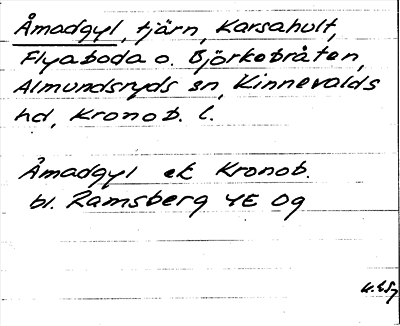 Åmadgyl, tjärn, Karsahult,
Flyaboda o. Björkebråten,
Almundsryds sn, Kinnevalds
hd, Kronob. l.
Åmadgyl ek Kronob.
bl. Ramsberg YE Og